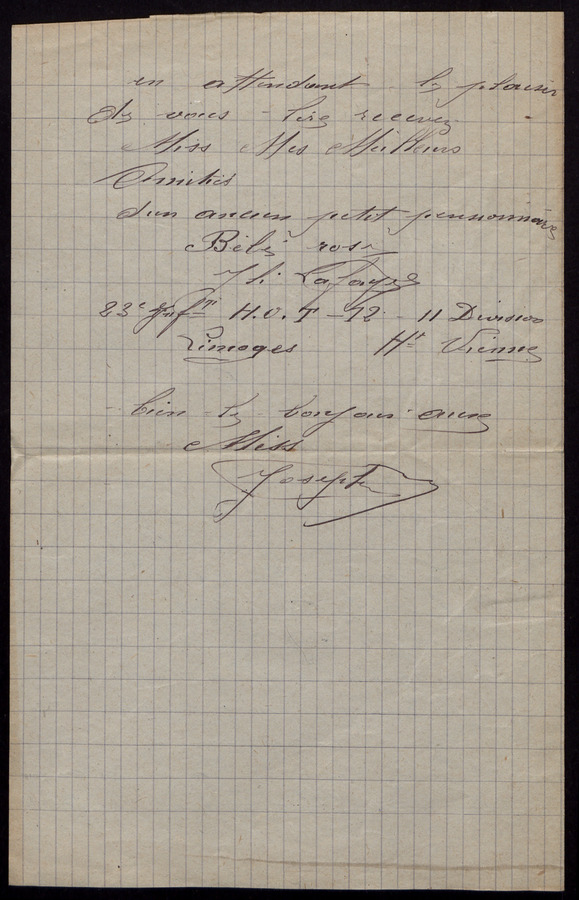 en attendant le plaisir
de vous lire recevez
Miss Mes Meilleurs
Amitiés
d'un ancien petit pensionnaire
Bébé rose
Jh. Lafaye
23e Infrie H.O.T - 12 - 11 Division
Limoges Hte Vienne
bien le bonjour aux
Miss
Joseph